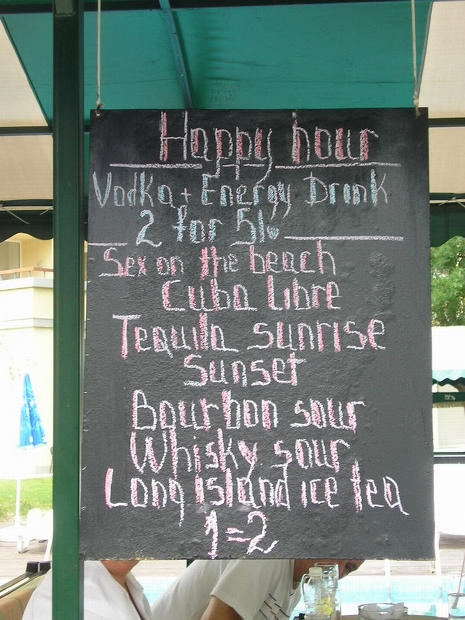 Happy hour
Vodka + Energy Drink
2 for 5lv
Sex on the beach
Cuba Libre
Tequila sunrise
Sunset
Bourbon sour
Whisky sour
Long island ice tea
1=2